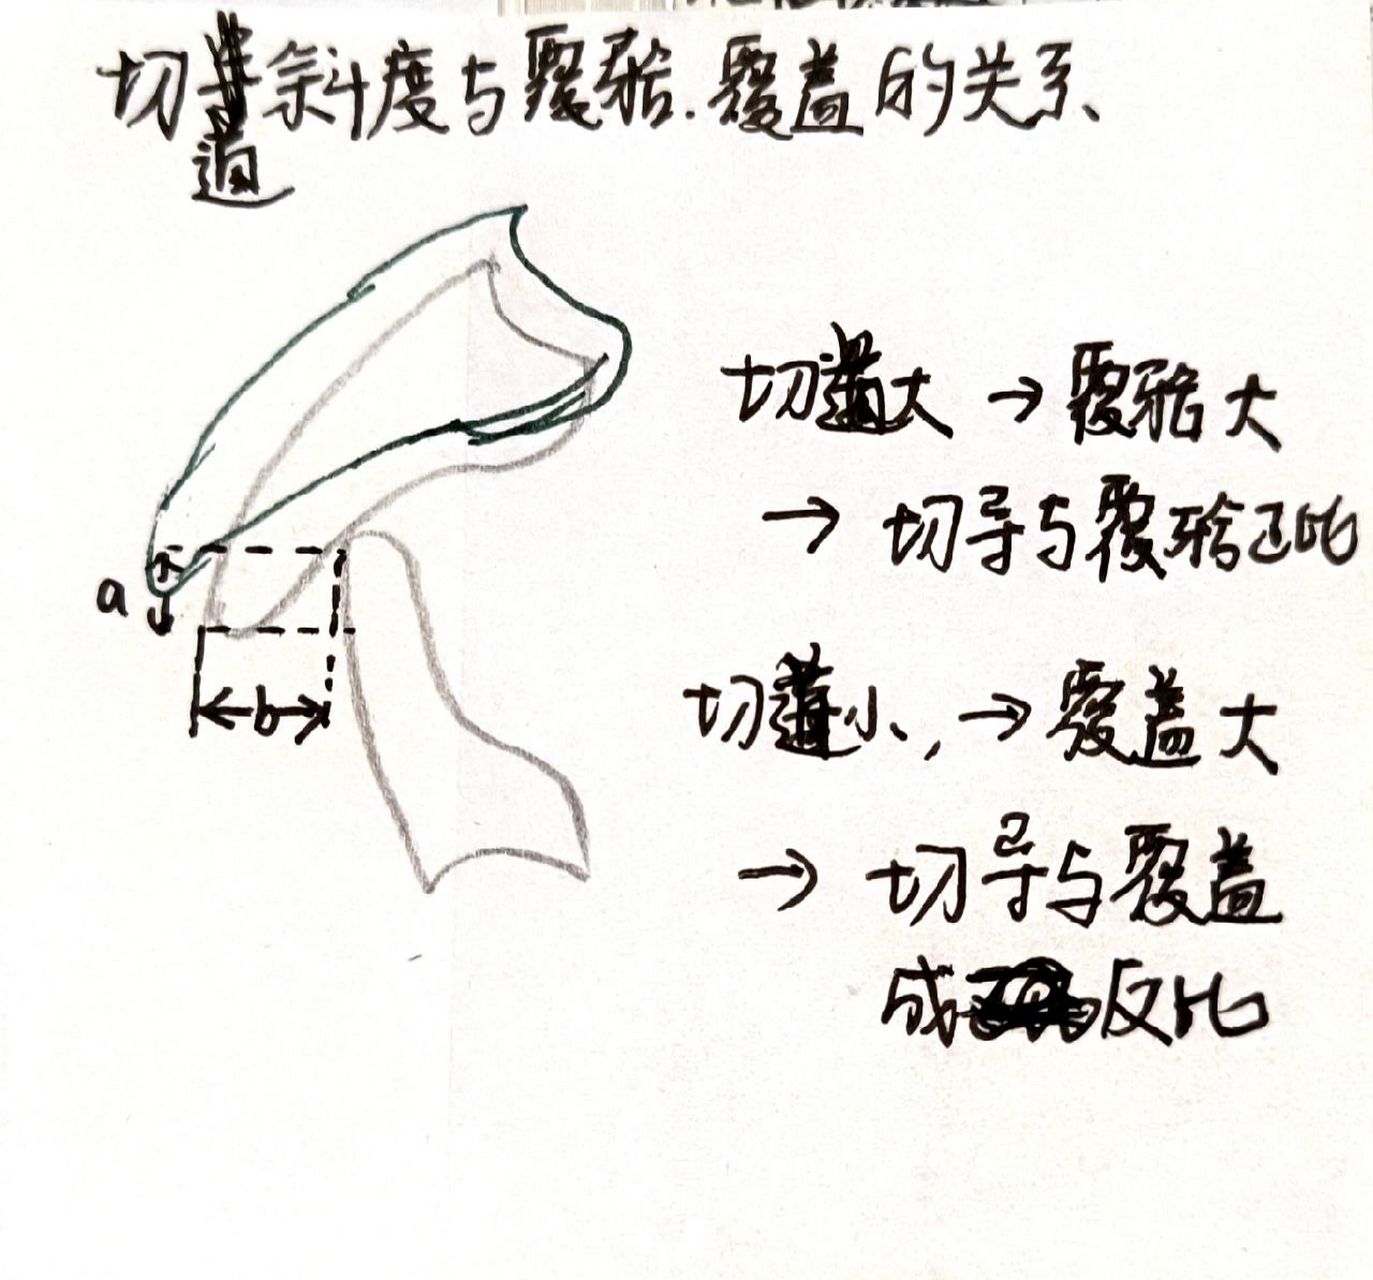 切道斜度与覆𬌗.覆盖的关系
切道大 → 覆𬌗大
→ 切导与覆𬌗正比
a
切道小, → 覆盖大
b
→ 切导与覆盖
成反比